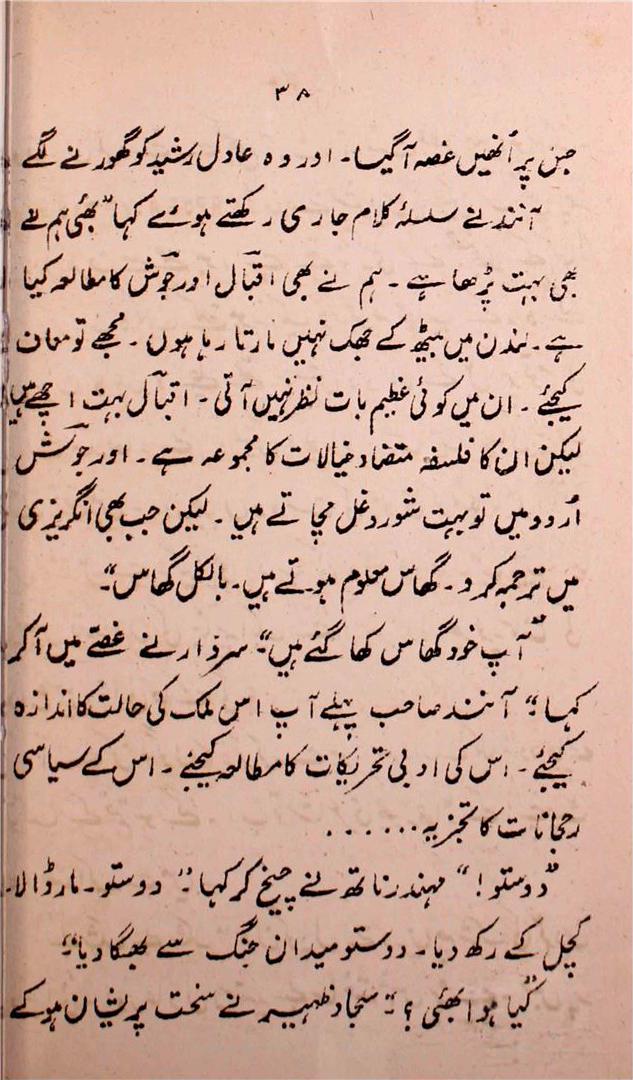 ۳۸
جن پر اُنھیں غصہ آگیا۔ اور وہ عادل رشید کو گھورنے لگے
آنند نے سلسلۂ کلام جاری رکھتے ہوئے کہا ”بھئی ہم نے
بھی بہت پڑھا ہے۔ ہم نے بھی اقبال اور جوش کا مطالعہ کیا
ہے۔ لندن میں بیٹھ کے جھک نہیں مارتا رہا ہوں۔ مجھے تو معاف
کیجئے۔ ان میں کوئی عظیم بات نظر نہیں آتی۔ اقبال بہت اچھے ہیں
لیکن ان کا فلسفہ متضاد خیالات کا مجموعہ ہے۔ اور جوش
اُردو میں تو بہت شور و غل مچاتے ہیں۔ لیکن جب بھی انگریزی
میں ترجمہ کرو۔ گھاس معلوم ہوتے ہیں۔ بالکل گھاس“۔
”آپ خود گھاس کھا گئے ہیں“۔ سردار نے غصّے میں آکر
کہا۔ ”آنند صاحب پہلے آپ اس ملک کی حالت کا اندازہ
کیجئے۔ اس کی ادبی تحریکات کا مطالعہ کیجئے۔ اس کے سیاسی
رجحانات کا تجزیہ......
”دوستو!“ مہندر ناتھ نے چیخ کر کہا۔ ”دوستو۔ مار ڈالا۔
کچل کے رکھ دیا۔ دوستو میدان جنگ سے بھگا دیا“۔
”کیا ہوا بھئی؟“۔ سجاد ظہیر نے سخت پریشان ہوکے